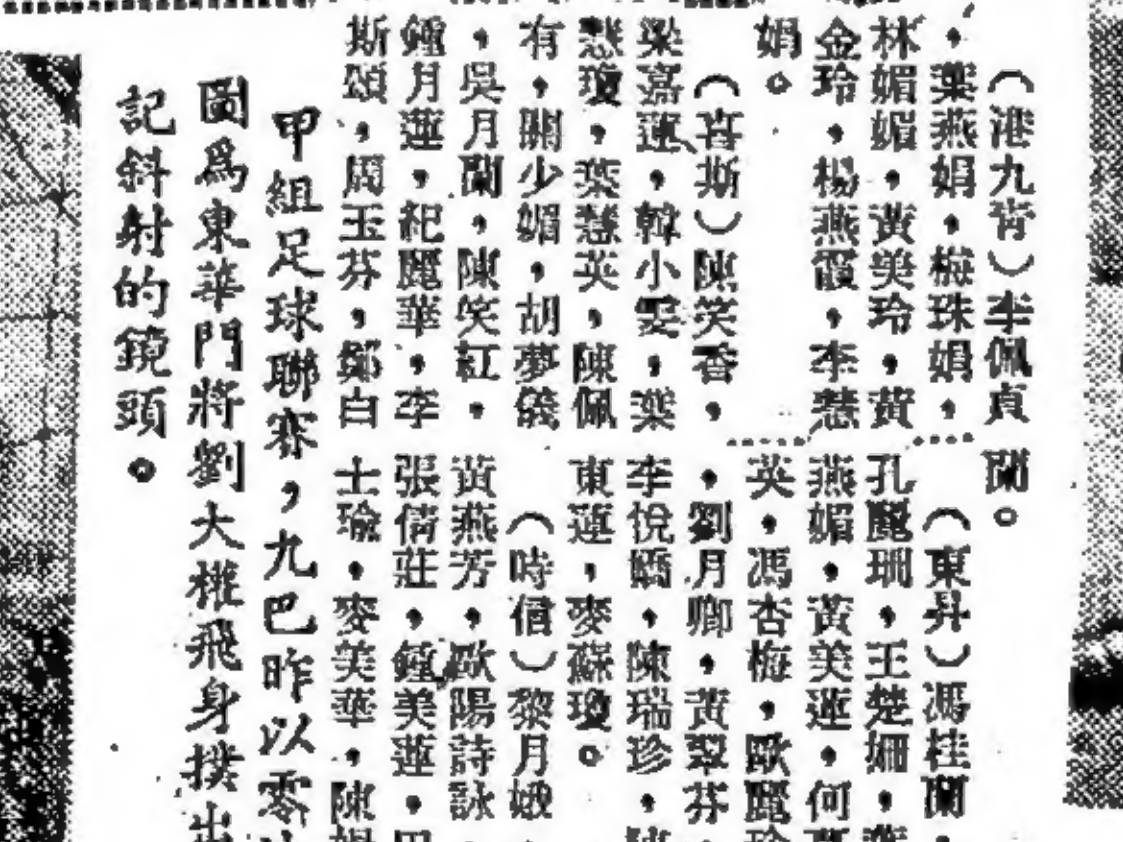 （港九青）李佩貞
，葉燕娟，梅珠娟，
林媚媚，黃美玲，黃
金玲，楊燕霞，李慧
娟。
（喜斯）陳笑香，
梁嘉蓮，韓小雯，葉
慧瓊，葉慧英，陳佩
有，關少媚，胡夢儀
，吳月蘭，陳笑紅，
鍾月蓮，紀麗華，李
斯頌，周玉芬，鄭白
蘭。
（東昇）馮桂蘭，
孔麗珊，王楚姍，
燕媚，黃美蓮，何
英，馮杏梅，歐麗珍
，劉月卿，黃翠芬，
李悅嬌，陳瑞珍，陳
東蓮，麥蘇瓊。
（時信）黎月娥，
黃燕芳，歐陽詩詠
張倩莊，鍾美蓮，
士瑜，麥美華，陳
甲組足球聯賽，九巴昨以零
圖爲東華門將劉大權飛身撲出
記斜射的鏡頭。